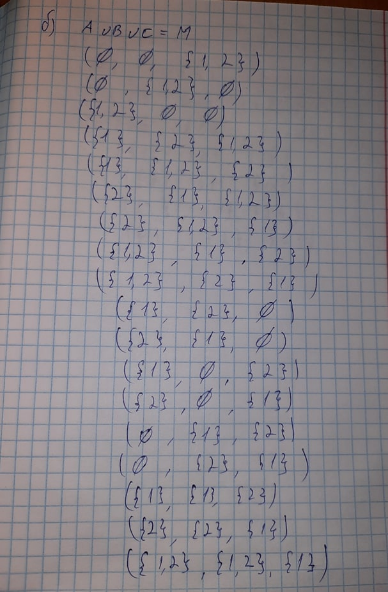 б) A ∪ B ∪ C = M
(∅, ∅, {1,2})
(∅, {1,2}, ∅)
({1,2}, ∅, ∅)
({1}, {2}, {1,2})
({1}, {1,2}, {2})
({2}, {1}, {1,2})
({2}, {1,2}, {1})
({1,2}, {1}, {2})
({1,2}, {2}, {1})
({1}, {2}, ∅)
({2}, {1}, ∅)
({1}, ∅, {2})
({2}, ∅, {1})
(∅, {1}, {2})
(∅, {2}, {1})
({1}, {1}, {2})
({2}, {2}, {1})
({1,2}, {1,2}, {1})